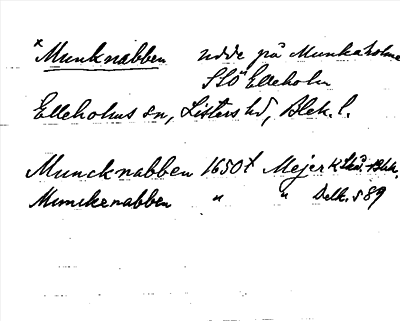 *Munknabben udde på Munkaholme
SSO Elleholm
Elleholms sn, Listers hd, Blek. l.
Muncknabben 1650t Mejer K Skå.-Blek.
Munckenabben " " Delk. s 89